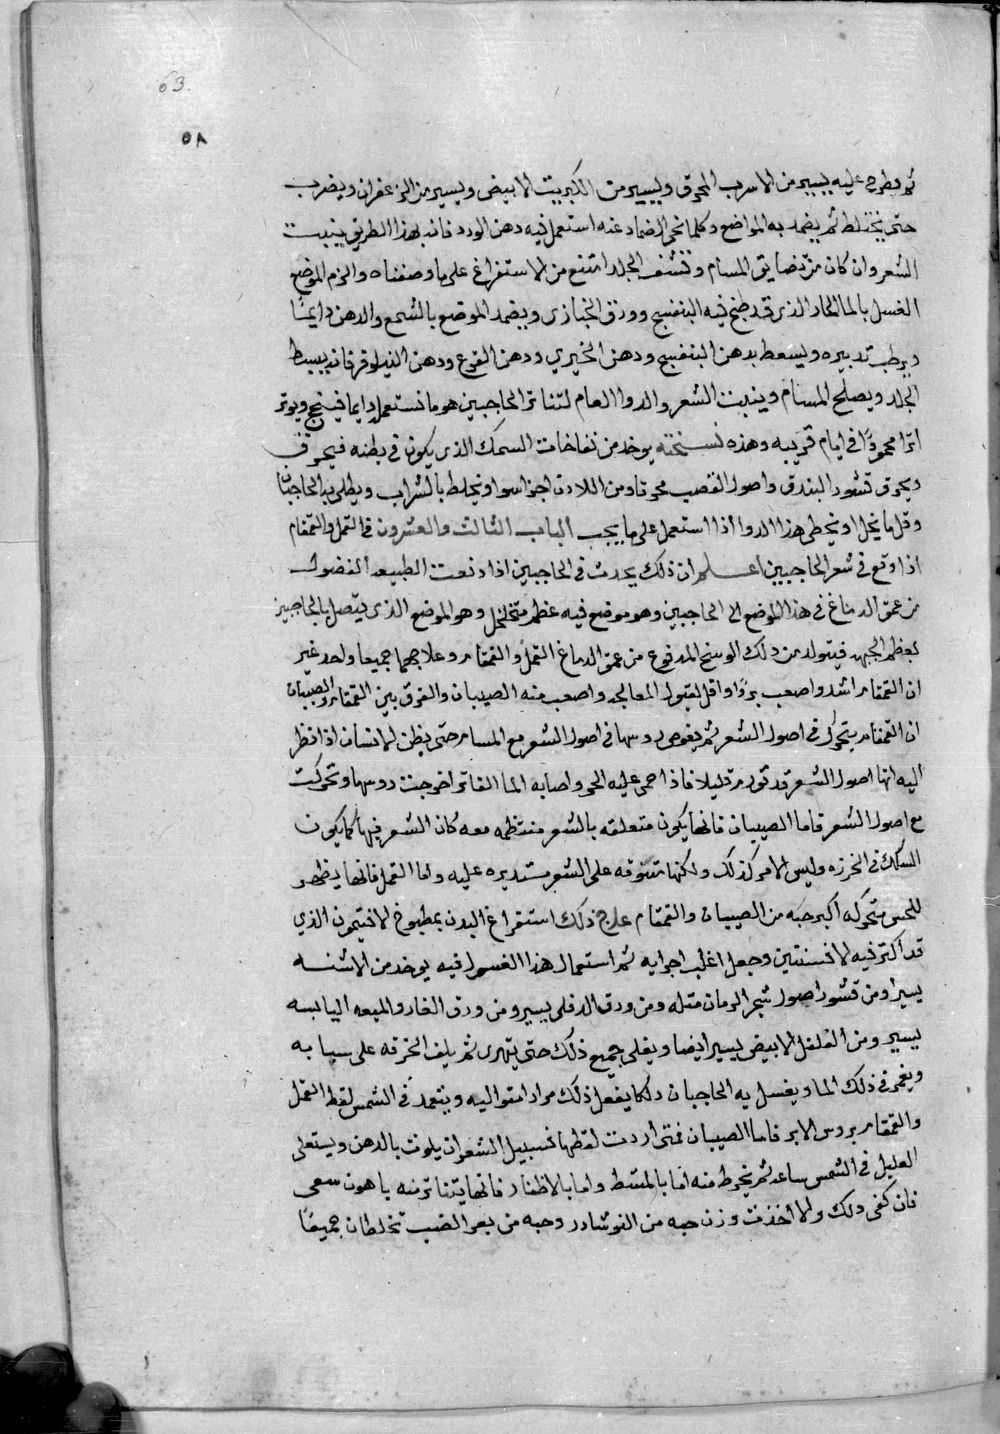 63.
٥٨
ثم يطرح عليه يسير من الاسرب المحرق ويسير من الكبريت الابيض ويسير من الزعفران ويضرب
حتى يختلط ثم يضمد به المواضع وكلما نحى الضماد عنه استعمل فيه دهن الورد فانه بهذا الطريق ينبت
الشعر وان كان من تضايق المسام وتنشف الجلد امتنع من الاستفراغ على ما وصفناه والزم الموضع
الغسل بالما الحار الذى قد طبخ فيه البنفسج وورق الخبازى ويضمد الموضع بالشمع والدهن دايما
ويرطب تدبيره ويسعط بدهن البنفسج ودهن الخيري ودهن القرع ودهن النيلوفر فانه يبسط
الجلد ويصلح المسام وينبت الشعر والدوا العام لتناثر الحاجبين هو ما نستعمله دايما فينجح ويوثر
اثرا محمودًا فى ايام قريبه وهذه نسخته يوخد من نفاخات السمك الذى يكون فى بطنه فيحرق
ويحرق قشور البندق واصول القصب محرقا ومن اللادن اجزا سوا وتخلط بالشراب ويطلى به الحاجبان
وقل ما يخل او يخطى هذا الدوا اذا استعمل على ما يجب الباب الثالث والعشرون فى القمل والقمقام
اذا وقع فى شعر الحاجبين اعلم ان ذلك يحدث فى الحاجبين اذا دفعت الطبيعه الفضول
من عمق الدماغ فى هذا الموضع الى الحاجبين وهو موضع فيه عظم متخلخل وهو الموضع الذى يتصل بالحاجبين
بعظم الجبهه فيتولد من ذلك الوسخ المدفوع من عمق الدماغ القمل والقمقام وعلاجهما جميعا واحد غير
ان القمقام اشد واصعب برًا واقل لقبول المعالجه واصعب منه الصيبان والفرق بين القمقام والصيبان
ان القمقام يتحرك فى اصول الشعر ثم يغوص روسها فى اصول الشعر مع المسام حتى يظن الانسان اذا نظر
اليه انها اصول الشعر قد تورم قليلا فاذا حمى عليه الحر واصابه الما الفاتر اخرجت روسها وتحركت
مع اصول الشعر فاما الصيبان فانها يكون متعلقه بالشعر منتظمه معه كان الشعر فيها كما يكون
السلك فى الخرزه وليس الامر كذلك ولكنها متنوقه على الشعر مستديره عليه واما القمل فانها يظهر
للحس متحركه اكبر جثه من الصيبان والقمقام علاج ذلك استفراغ البدن بمطبوخ الافتيمون الذي
قد اكثر فيه الافسنتين وجعل اغلب اجزايه ثم استعمال هذا الغسول فيه يوخد من الاشنه
يسيرا ومن قشور اصول شجر الرمان مثله ومن ورق الدفلى يسير ومن ورق الغار والميعه اليابسه
يسير ومن الفلفل الابيض يسير ايضا ويغلى جميع ذلك حتى يتهرى ثم يلف الخرقه على سبابه
ويغمر فى ذلك الما ويغسل به الحاجبان دلكا يفعل ذلك مرارا متواليه ويتعمد فى الشمس لقط القمل
والقمقام بروس الابر فاما الصيبان فمتى اردت لقطها فسبيل الشعر ان يلوث بالدهن ويستعلى
العليل فى الشمس ساعه ثم يخرط منه اما بالمشط واما بالاظفار فانها يتناثر منه باهون سعى
فان كفى ذلك والا اخذت وزن حبه من النوشادر وحبه من بعر الضب تخلطان جميعًا